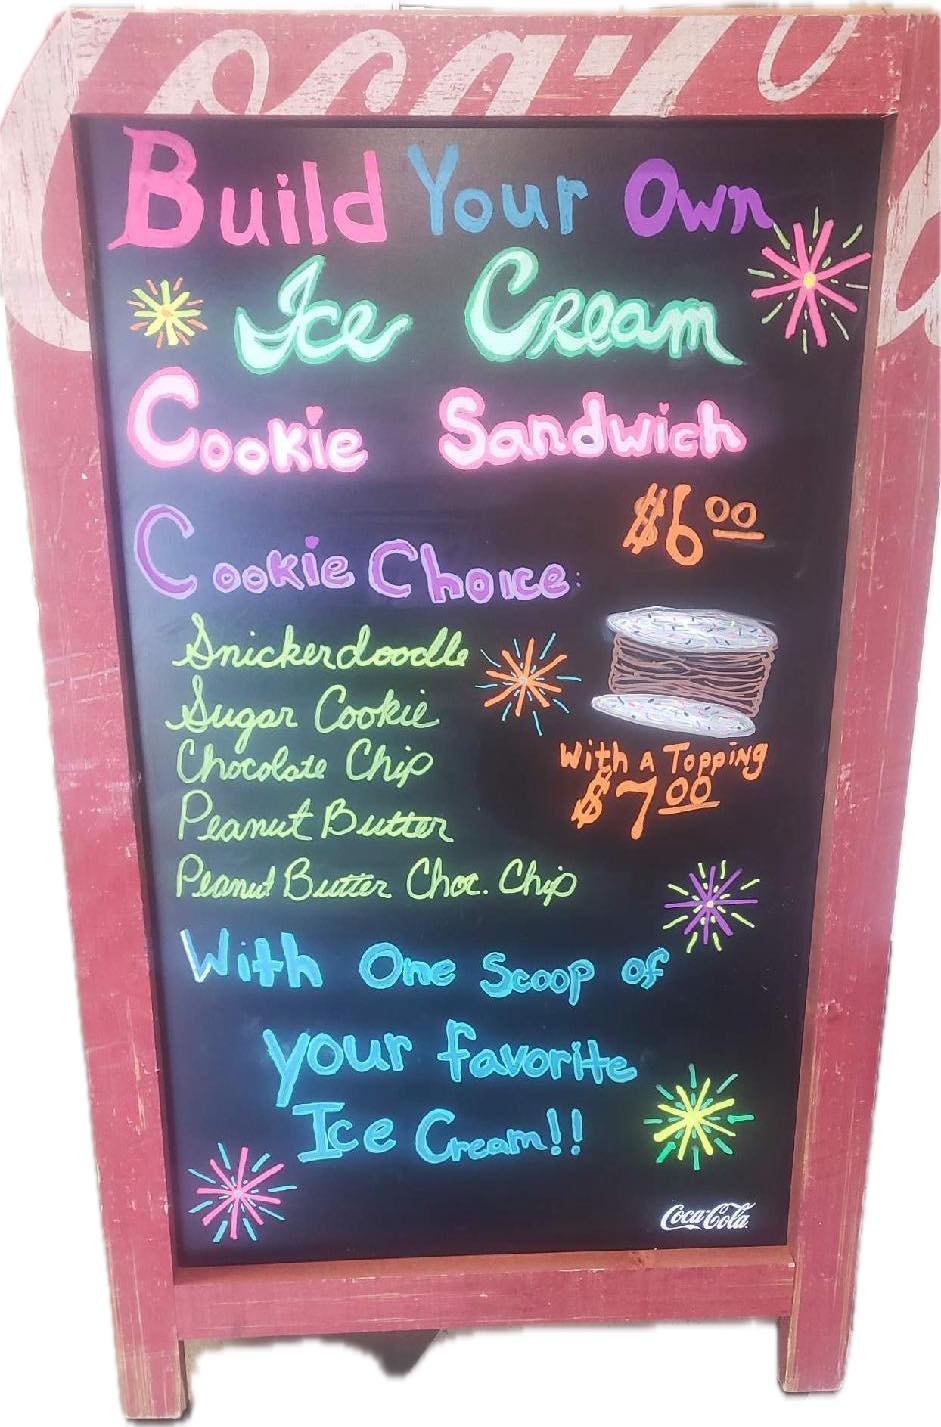 Coca-Co
Build Your Own
Ice Cream
Cookie Sandwich
$6.00
Cookie Choice:
Snickerdoodle
Sugar Cookie
Chocolate Chip
With A Topping
$7.00
Peanut Butter
Peanut Butter Choc. Chip
With One Scoop of
your favorite
Ice Cream!!
Coca-Cola